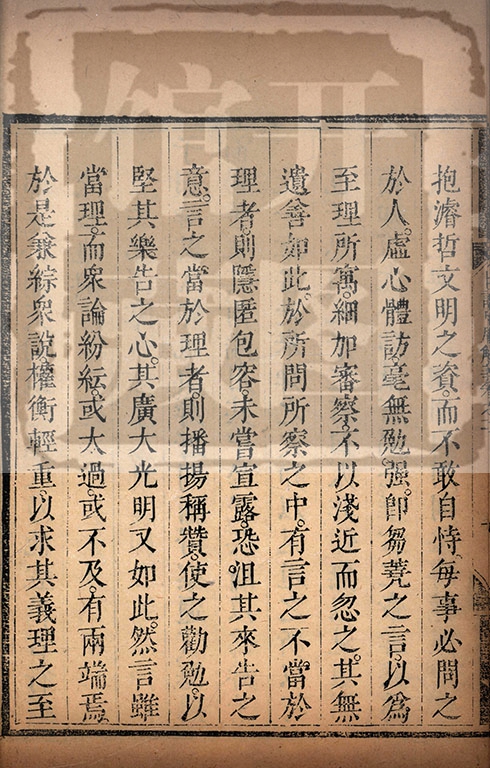 抱濬哲文明之資。而不敢自恃。每事必問之
於人。虛心體訪。毫無勉強。卽芻蕘之言。以為
至理所寓。細加審察。不以淺近而忽之。其無
遺善如此。於所問所察之中。有言之不當於
理者。則隱匿包容。未嘗宣露。恐沮其來告之
意。言之當於理者。則播揚稱贊。使之勸勉。以
堅其樂告之心。其廣大光明又如此。然言雖
當理。而衆論紛紜。或太過。或不及。有兩端焉
於是兼綜衆說。權衡輕重。以求其義理之至